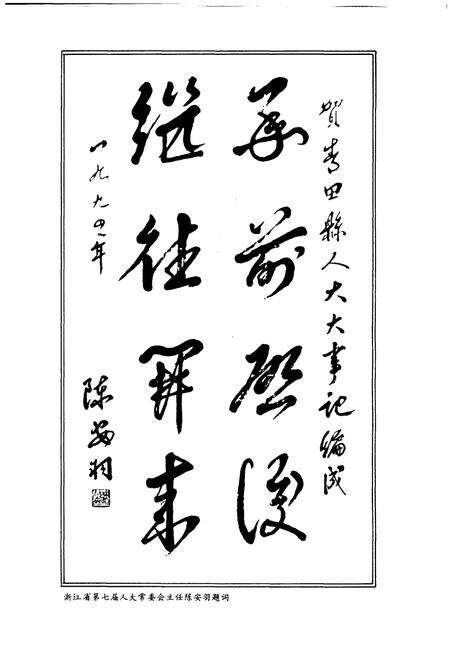 賀青田縣人大大事记编成
承前啓後
继往開来
一九九四年
陈安羽
浙江省第七届人大常委会主任陈安羽题词